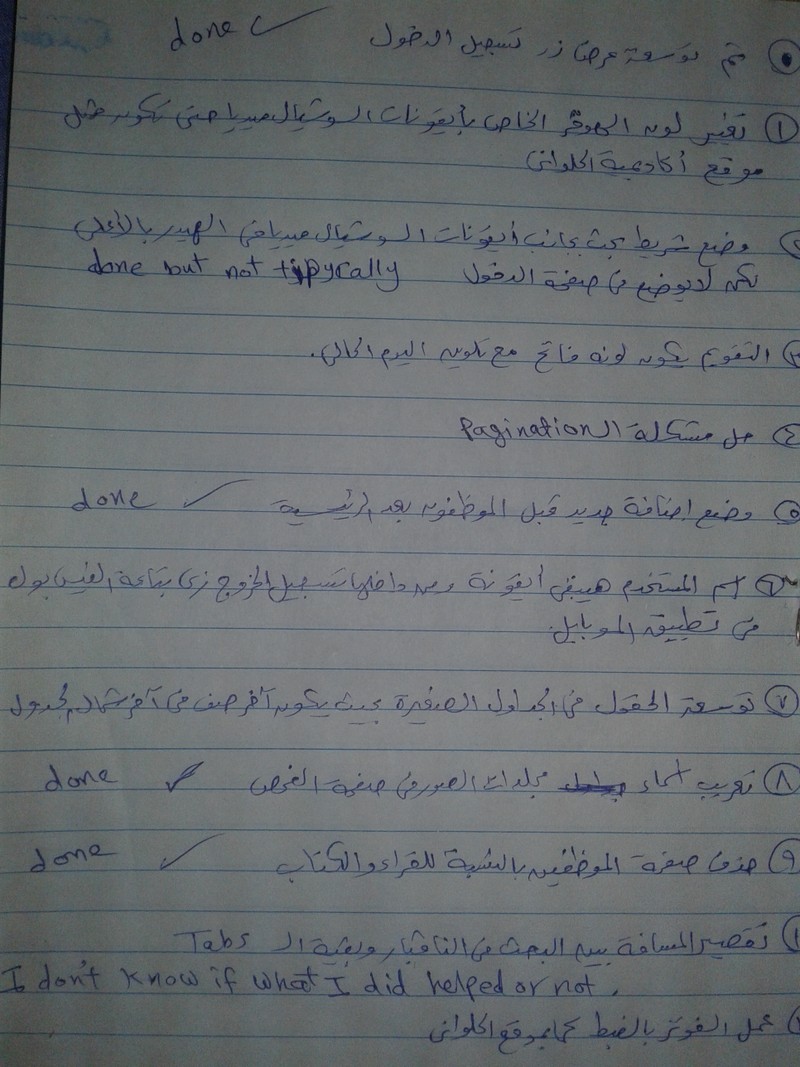 تم توسعة عرض زر تسجيل الدخول done
① تغيير لون الهوفر الخاص بأيقونات السوشيال ميديا حتى تكون مثل
موقع أكاديمية الحلواني
وضع شريط بحث بجانب أيقونات السوشيال ميديا في الهيدر بالأعلى
لكن لا يوضع في صفحة الدخول done but not tipycally
③ التقويم يكون لونه فاتح مع تلوين اليوم الحالي.
④ حل مشكلة الـ Pagination
⑤ وضع اضافة جديد قبل الموظفون بعد الرئيسية done
⑥ اسم المستخدم هيبقى أيقونة ومن داخلها تسجيل الخروج زى بتاعة الفيس بوك
في تطبيق الموبايل.
⑦ توسعة الحقول في الجداول الصغيرة بحيث يكون آخر صف في آخر شمال الجدول
⑧ تعريب أسماء مجلدات الصور في صفحة الفحص done
⑨ حذف صفحة الموظفين بالنسبة للقراء والكتاب done
تقصير المسافة بين البحث في النافبار وبقية الـ Tabs
I don't know if what I did helped or not.
عمل الفوتر بالضبط كما بموقع الحلواني